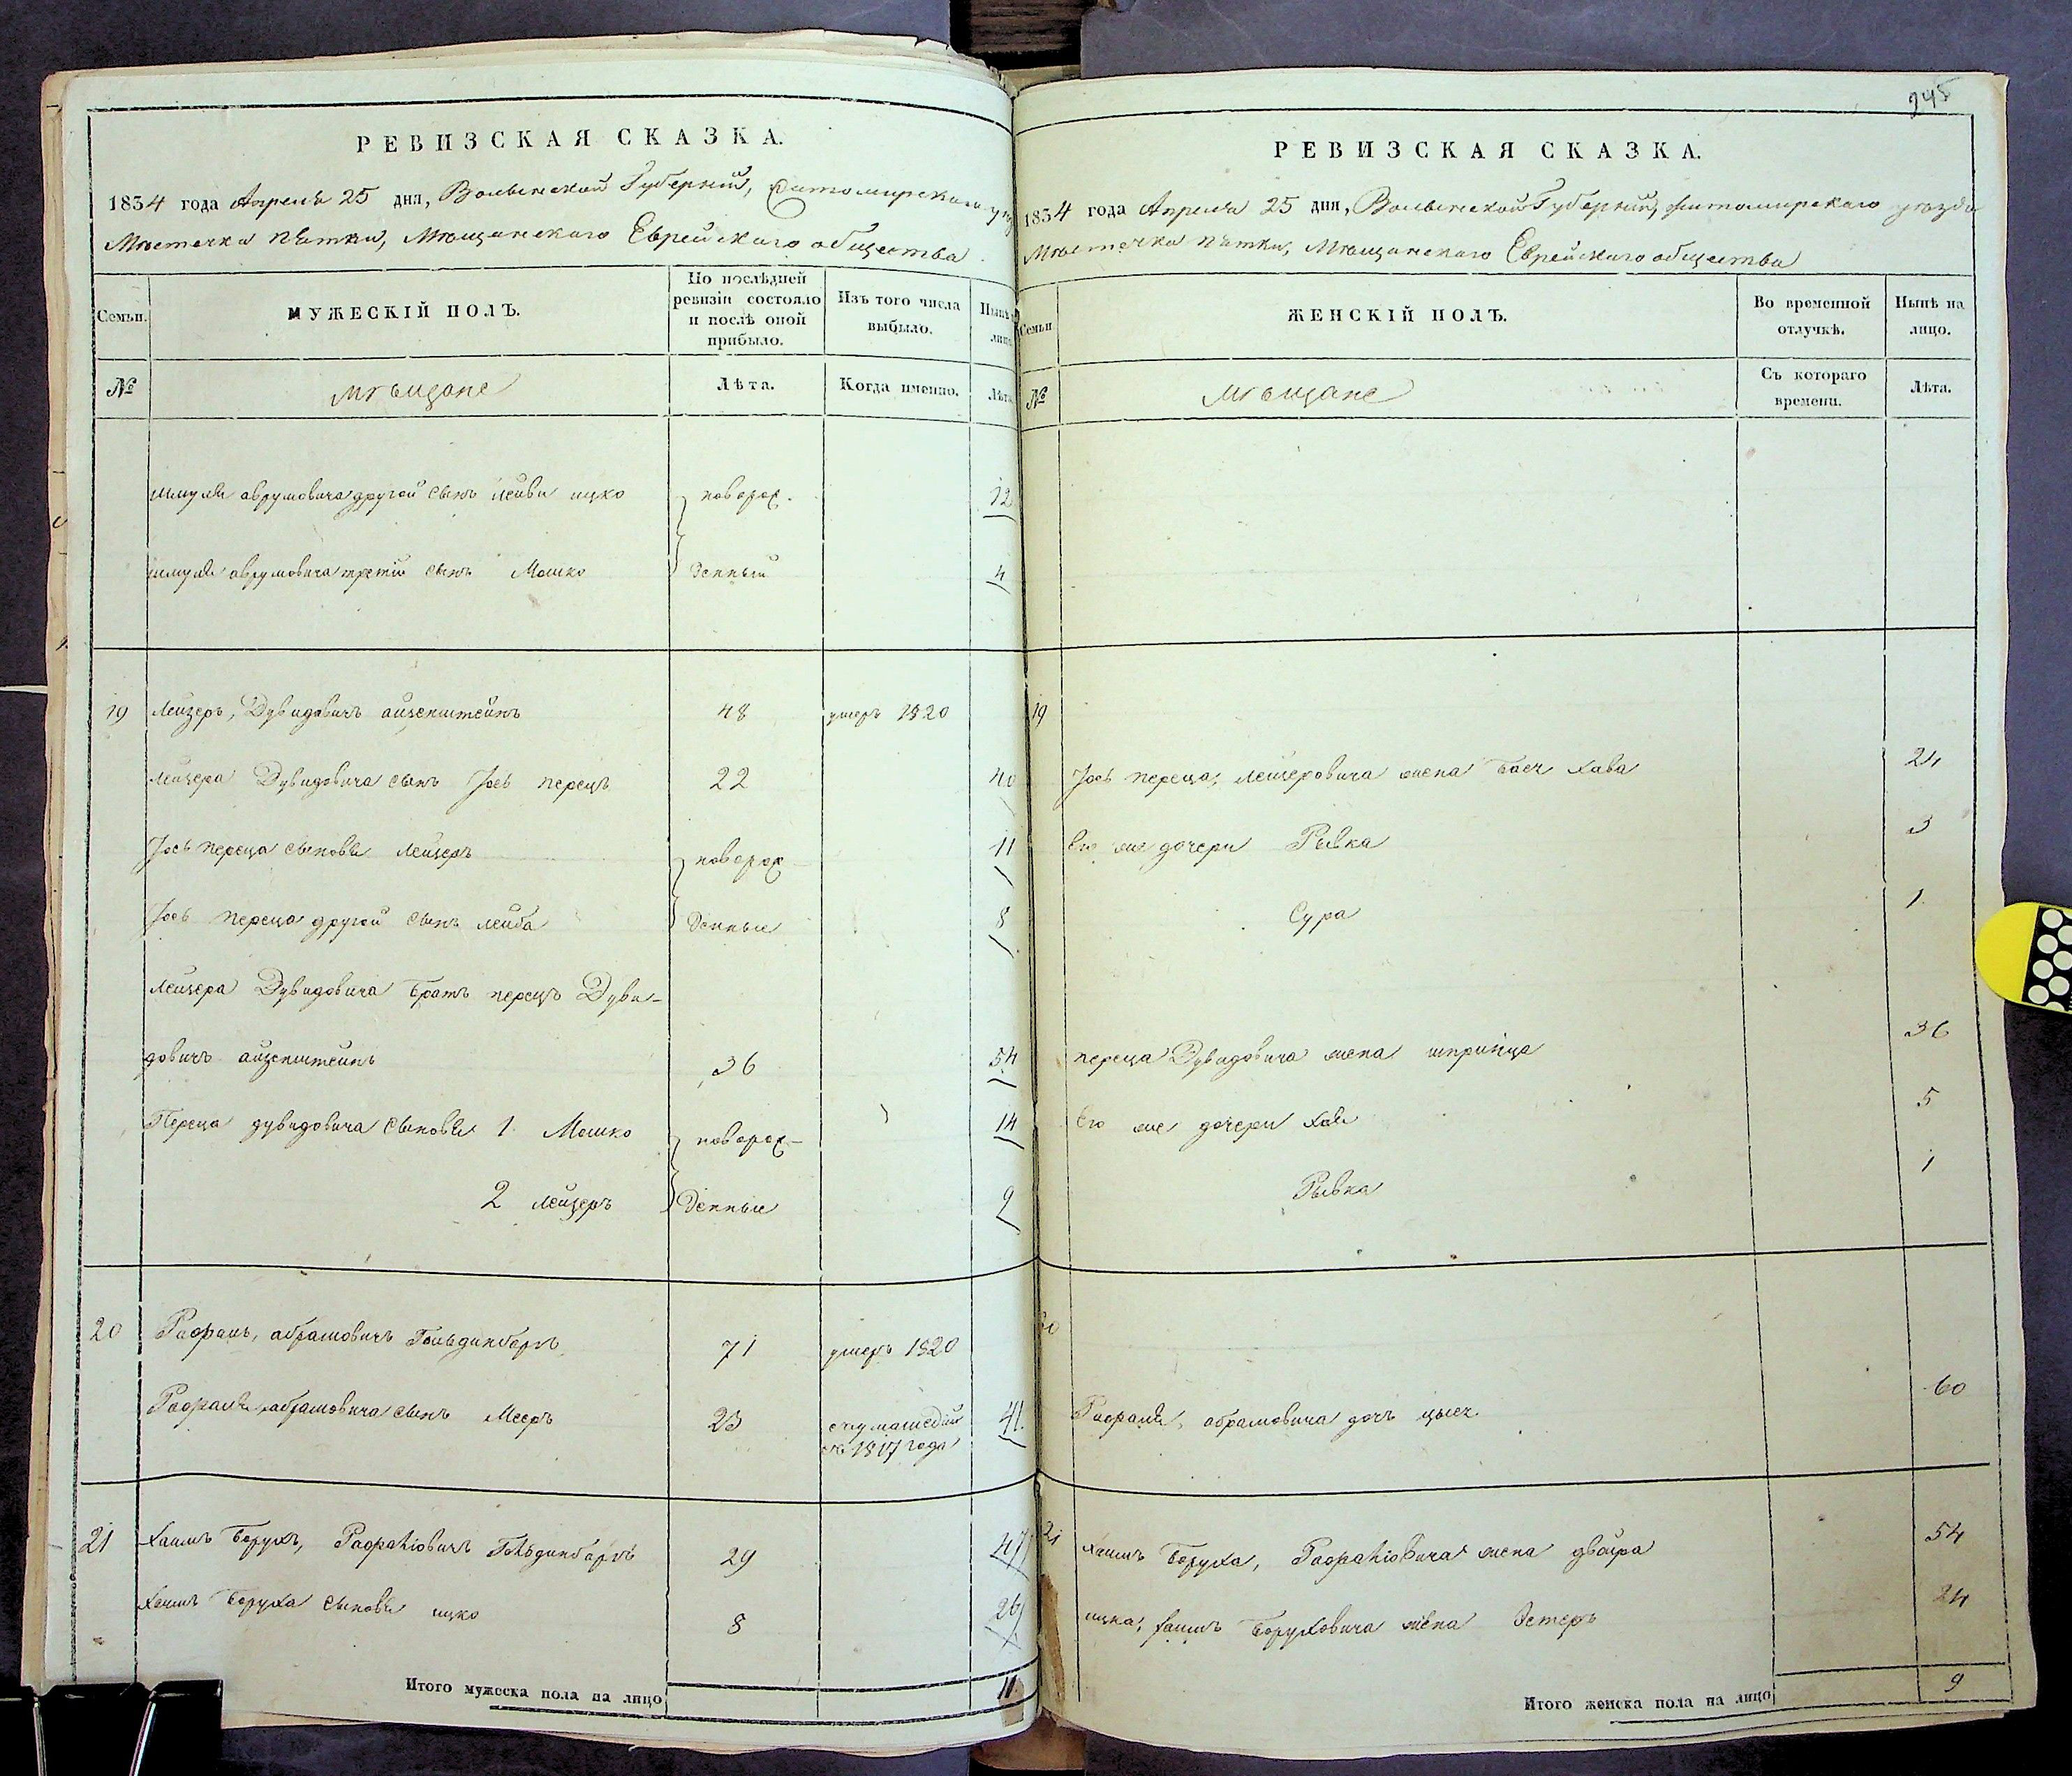 245
РЕВИЗСКАЯ СКАЗКА.
1834 года Апреля 25 дня, Волынской Губерніи, Житомирскаго
Мѣстечка Пятки, Мѣщанскаго Еврейскаго общества
Семьи.
МУЖЕСКІЙ ПОЛЪ.
По послѣдней ревизіи состояло и послѣ оной прибыло.
Изъ того числа выбыло.
Нынѣ
№
мѣщане
Лѣта.
Когда именно.
Лѣта
Шмуля аврумовича другой сынъ Лейви ицко новорож- 12
шмуля аврумовича третій сынъ Мошко денный 4
19 Лейзеръ, Дувидовичъ айзенштейнъ 48 умеръ 1820
лейзера Дувидовича сынъ Іось перецъ 22 40
Іось переца сыновья лейзеръ новорож- 11
Іось переца другой сынъ лейба денные 8
Лейзера Дувидовича братъ перецъ Дуви-
довичъ айзенштейнъ 36 54
Переца дувидовича сыновья 1 Мошко новорож- 14
2 лейзеръ денные 9
20 Рафаль, абрамовичъ Гольдинберъ 71 умеръ 1820
Рафаля абрамовича сынъ Мееръ 23 сумашедшій съ 1817 года 41
21 Хаимъ Борухъ, Гольдинберъ 29 47
Хаимъ Боруха сыновья ицко 8 26
Итого мужеска пола на лицо 11
РЕВИЗСКАЯ СКАЗКА.
1834 года Апреля 25 дня, Волынской Губерніи, Житомирскаго уѣзда
Мѣстечка Пятки, Мѣщанскаго Еврейскаго общества
Семьи
ЖЕНСКІЙ ПОЛЪ.
Во временной отлучкѣ.
Нынѣ на лицо.
№
мѣщане
Съ котораго времени.
Лѣта.
19
Іось переца, лейзеровича жена Бася Хава 24
Его же дочери Рывка 3
Сура 1
переца Дувидовича жена шпринца 36
Его же дочери Хая 5
Рывка 1
20
Рафаля, абрамовича дочь 60
21 Хаимъ Боруха, жена двойра 54
ицка, хаимъ Боруховича жена Эстеръ 24
Итого женска пола на лицо 9